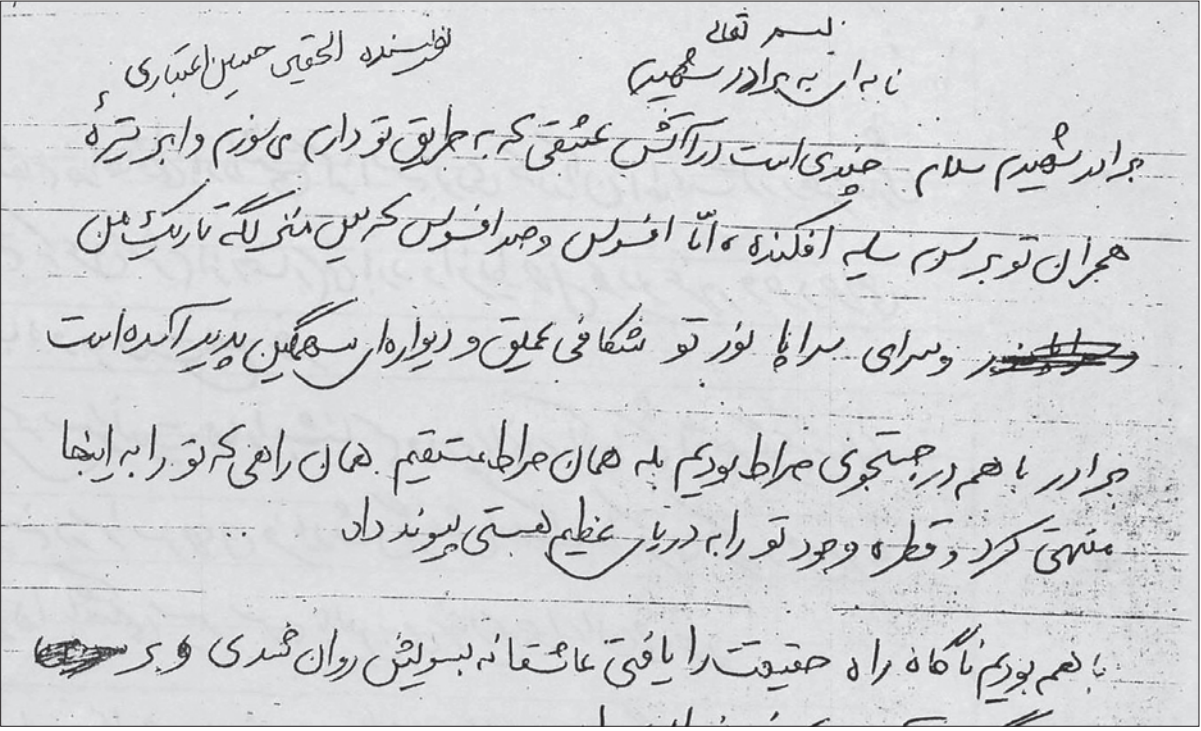 بسم تعالی
نامه ای به برادر شهیدم
نویسنده الحقیر حسین اعتباری
برادر شهیدم سلام چندی است در آتش عشقی که به طریق تو دارم می سوزم و ابر تیرۀ
هجران تو بر سرم سایه افکنده، امّا افسوس و صد افسوس که بین منزلگه تاریک من
و سرای سراپا نور تو شکافی عمیق و دیواره ای سهمگین پدید آمده است
برادر با هم در جستجوی صراط بودیم بله همان صراط مستقیم همان راهی که تو را به اینجا
منتهی کرد و قطره وجود تو را به دریای عظیم هستی پیوند داد ...
با هم بودیم ناگاه راه حقیقت را یافتی عاشقانه بسویش روان شدی و بر